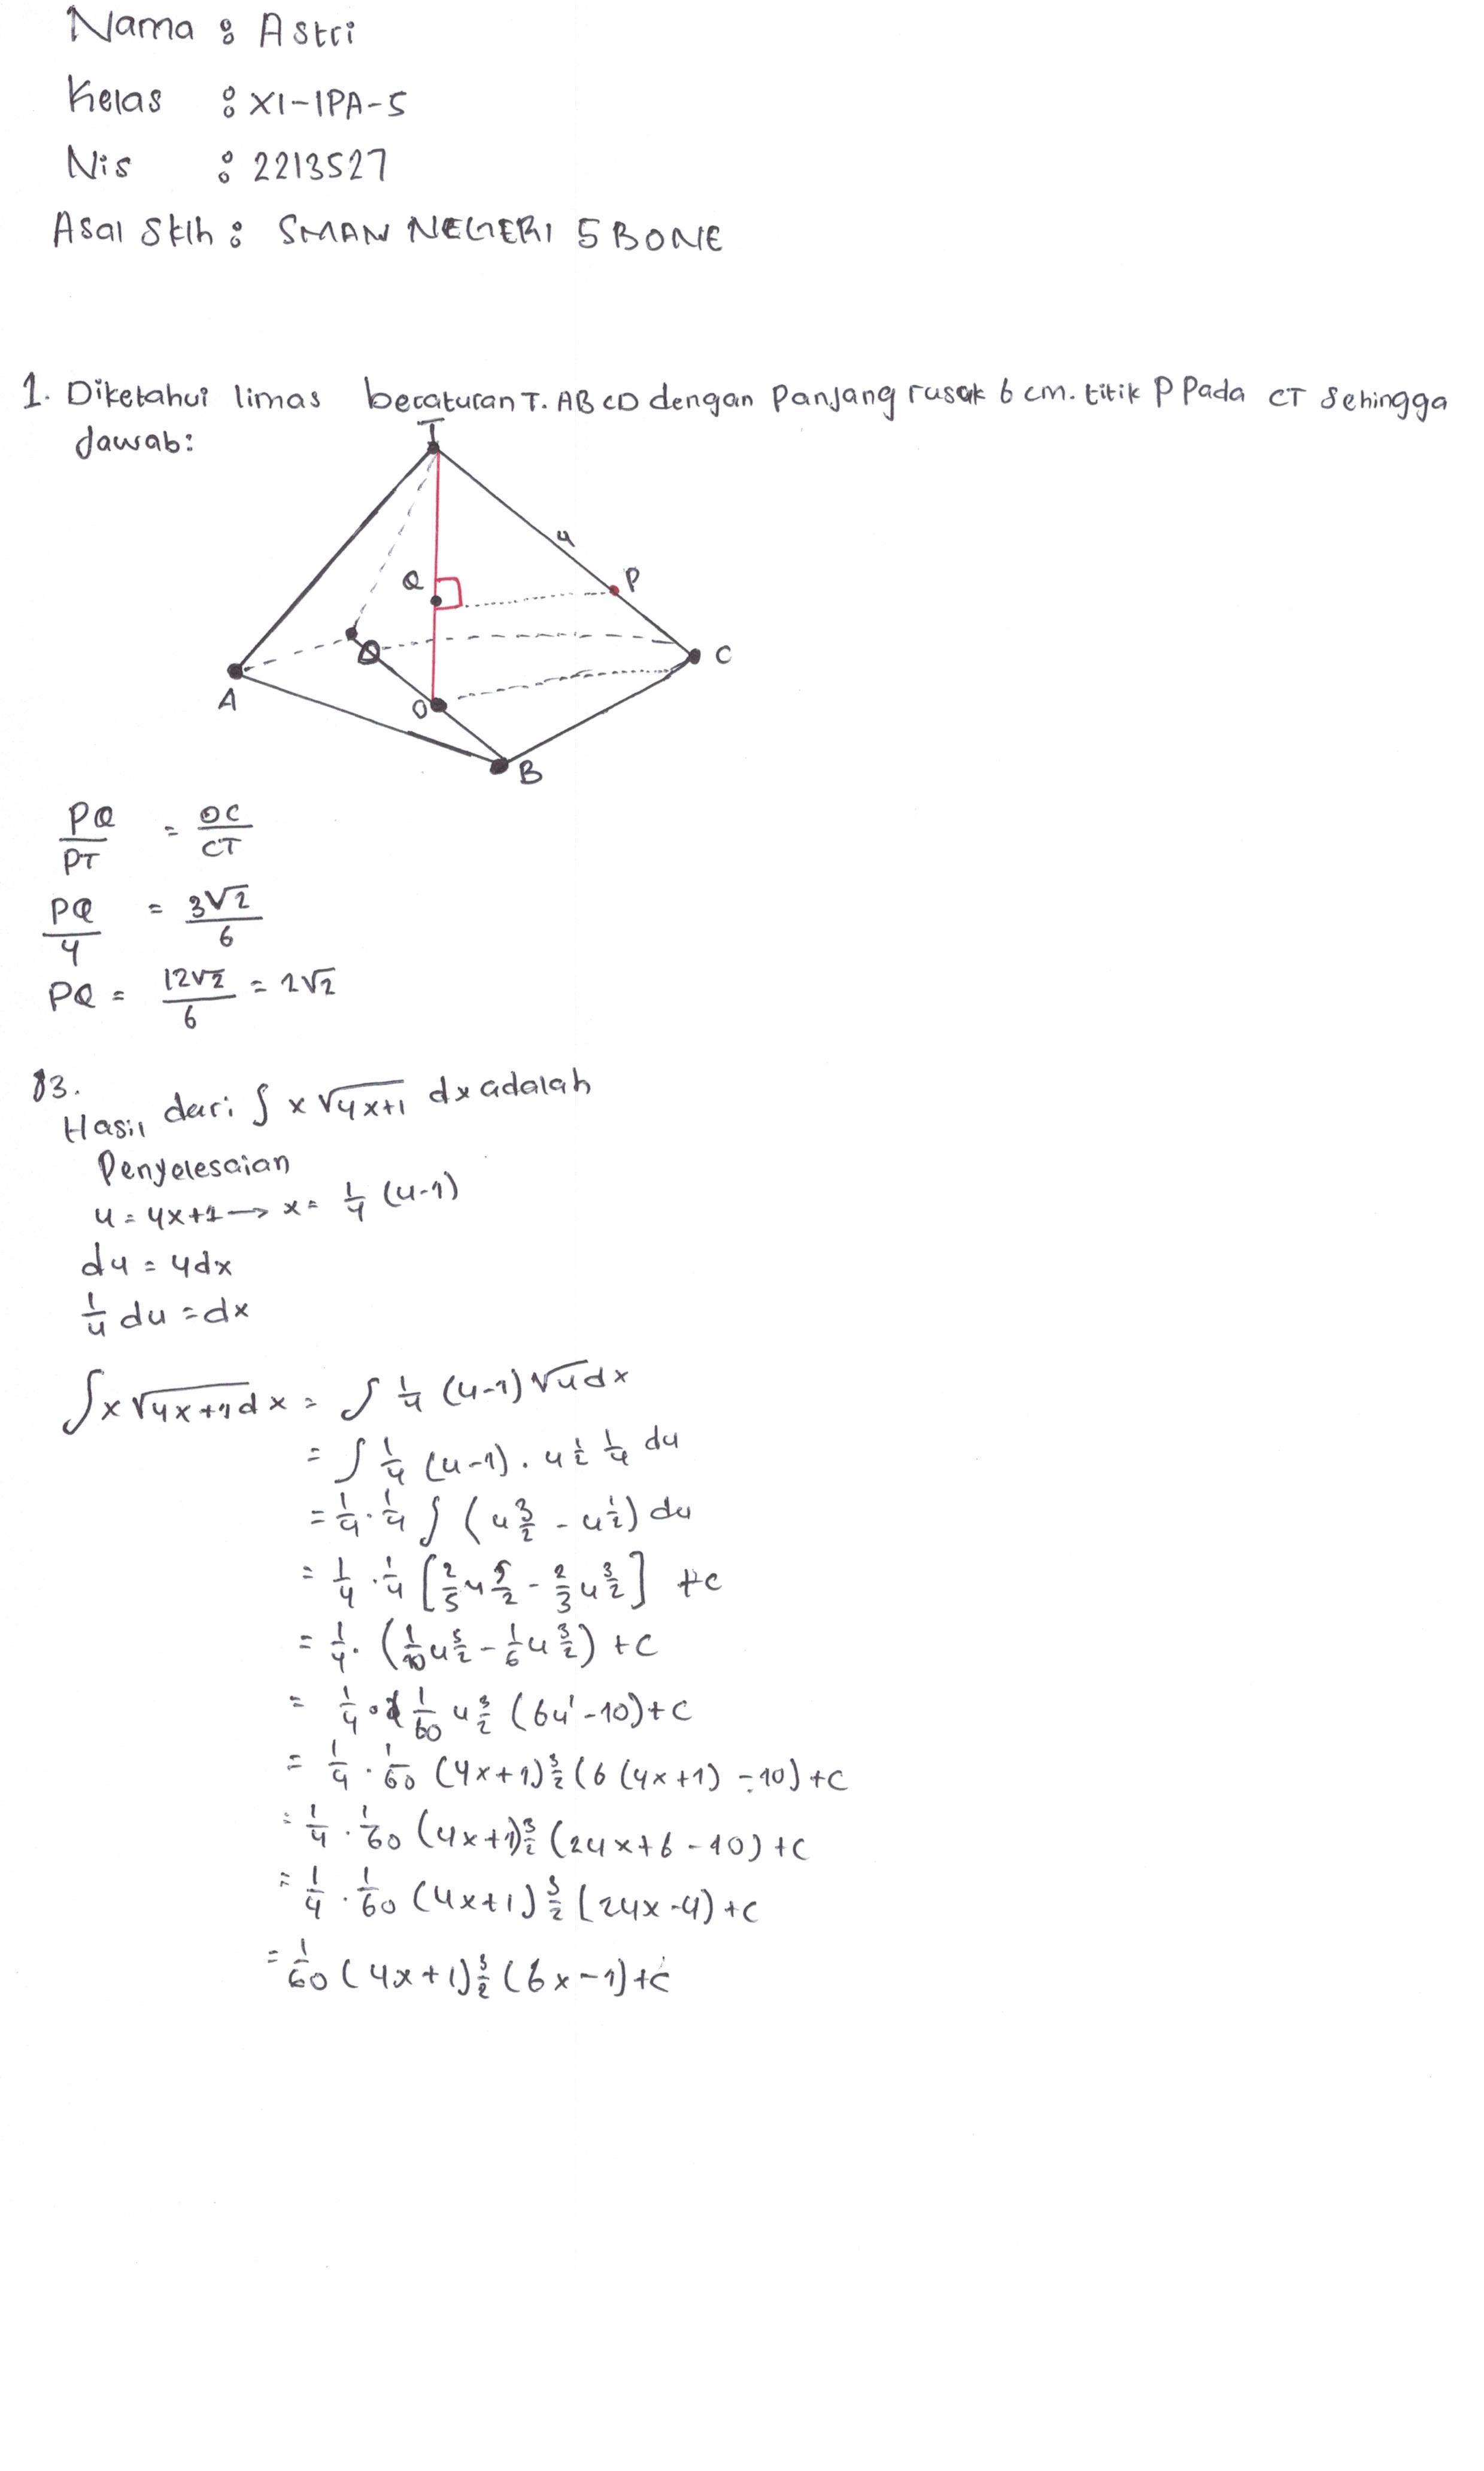 Nama : Astri
Kelas : XI-IPA-5
Nis : 2213527
Asal Sklh : SMAN NEGERI 5 BONE
1. Diketahui limas beraturan T. ABCD dengan Panjang rusak 6 cm. titik P Pada CT Sehingga
Jawab:
T
4
Q
P
D
C
A
O
B
PQ/PT = OC/CT
PQ/4 = 3√2/6
PQ = 12√2/6 = 2√2
83.
Hasil dari ∫ x √4x+1 dx adalah
Penyelesaian
u = 4x+1 → x = 1/4 (u-1)
du = 4dx
1/4 du = dx
∫x√4x+1 dx = ∫ 1/4 (u-1) √u dx
= ∫ 1/4 (u-1) . u^1/2 1/4 du
= 1/4 . 1/4 ∫ (u^3/2 - u^1/2) du
= 1/4 . 1/4 [2/5 u^5/2 - 2/3 u^3/2] + c
= 1/4 . (1/10 u^5/2 - 1/6 u^3/2) + C
= 1/4 . 1/60 u^3/2 (6u^1 - 10) + C
= 1/4 . 1/60 (4x+1)^3/2 (6 (4x+1) - 10) + C
= 1/4 . 1/60 (4x+1)^3/2 (24x+6-10) + C
= 1/4 . 1/60 (4x+1)^3/2 (24x-4) + C
= 1/60 (4x+1)^3/2 (6x-1) + C